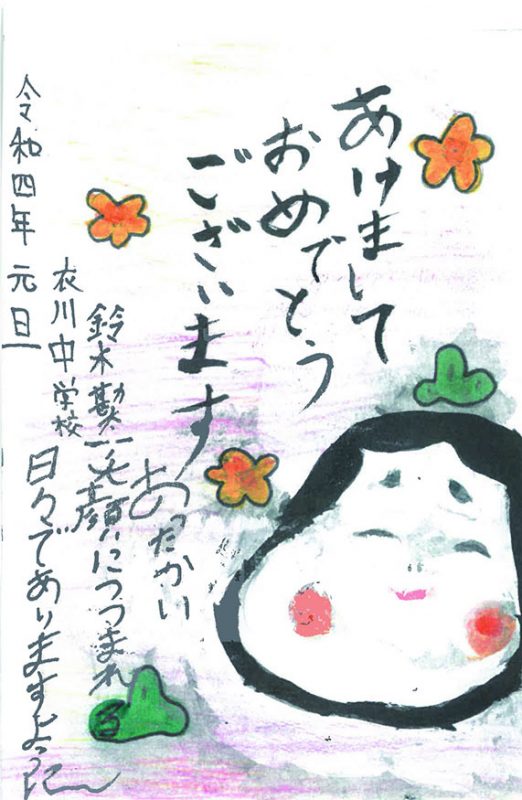 あけまして
おめでとう
ございます
あったかい
笑顔につつまれ
る
日々でありますように
鈴木勘
衣川中学校
令和四年 元旦